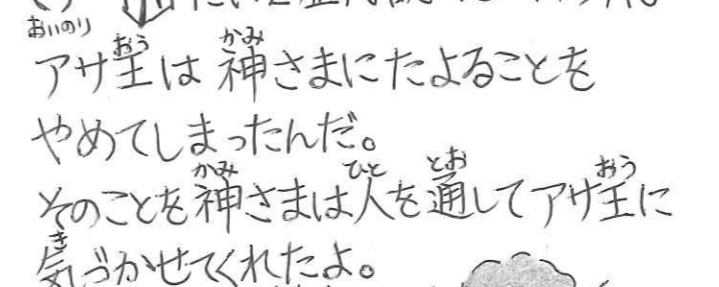 おいのり
アサ王は神さまにたよることを
やめてしまったんだ。
そのことを神さまは人を通してアサ王に
気づかせてくれたよ。